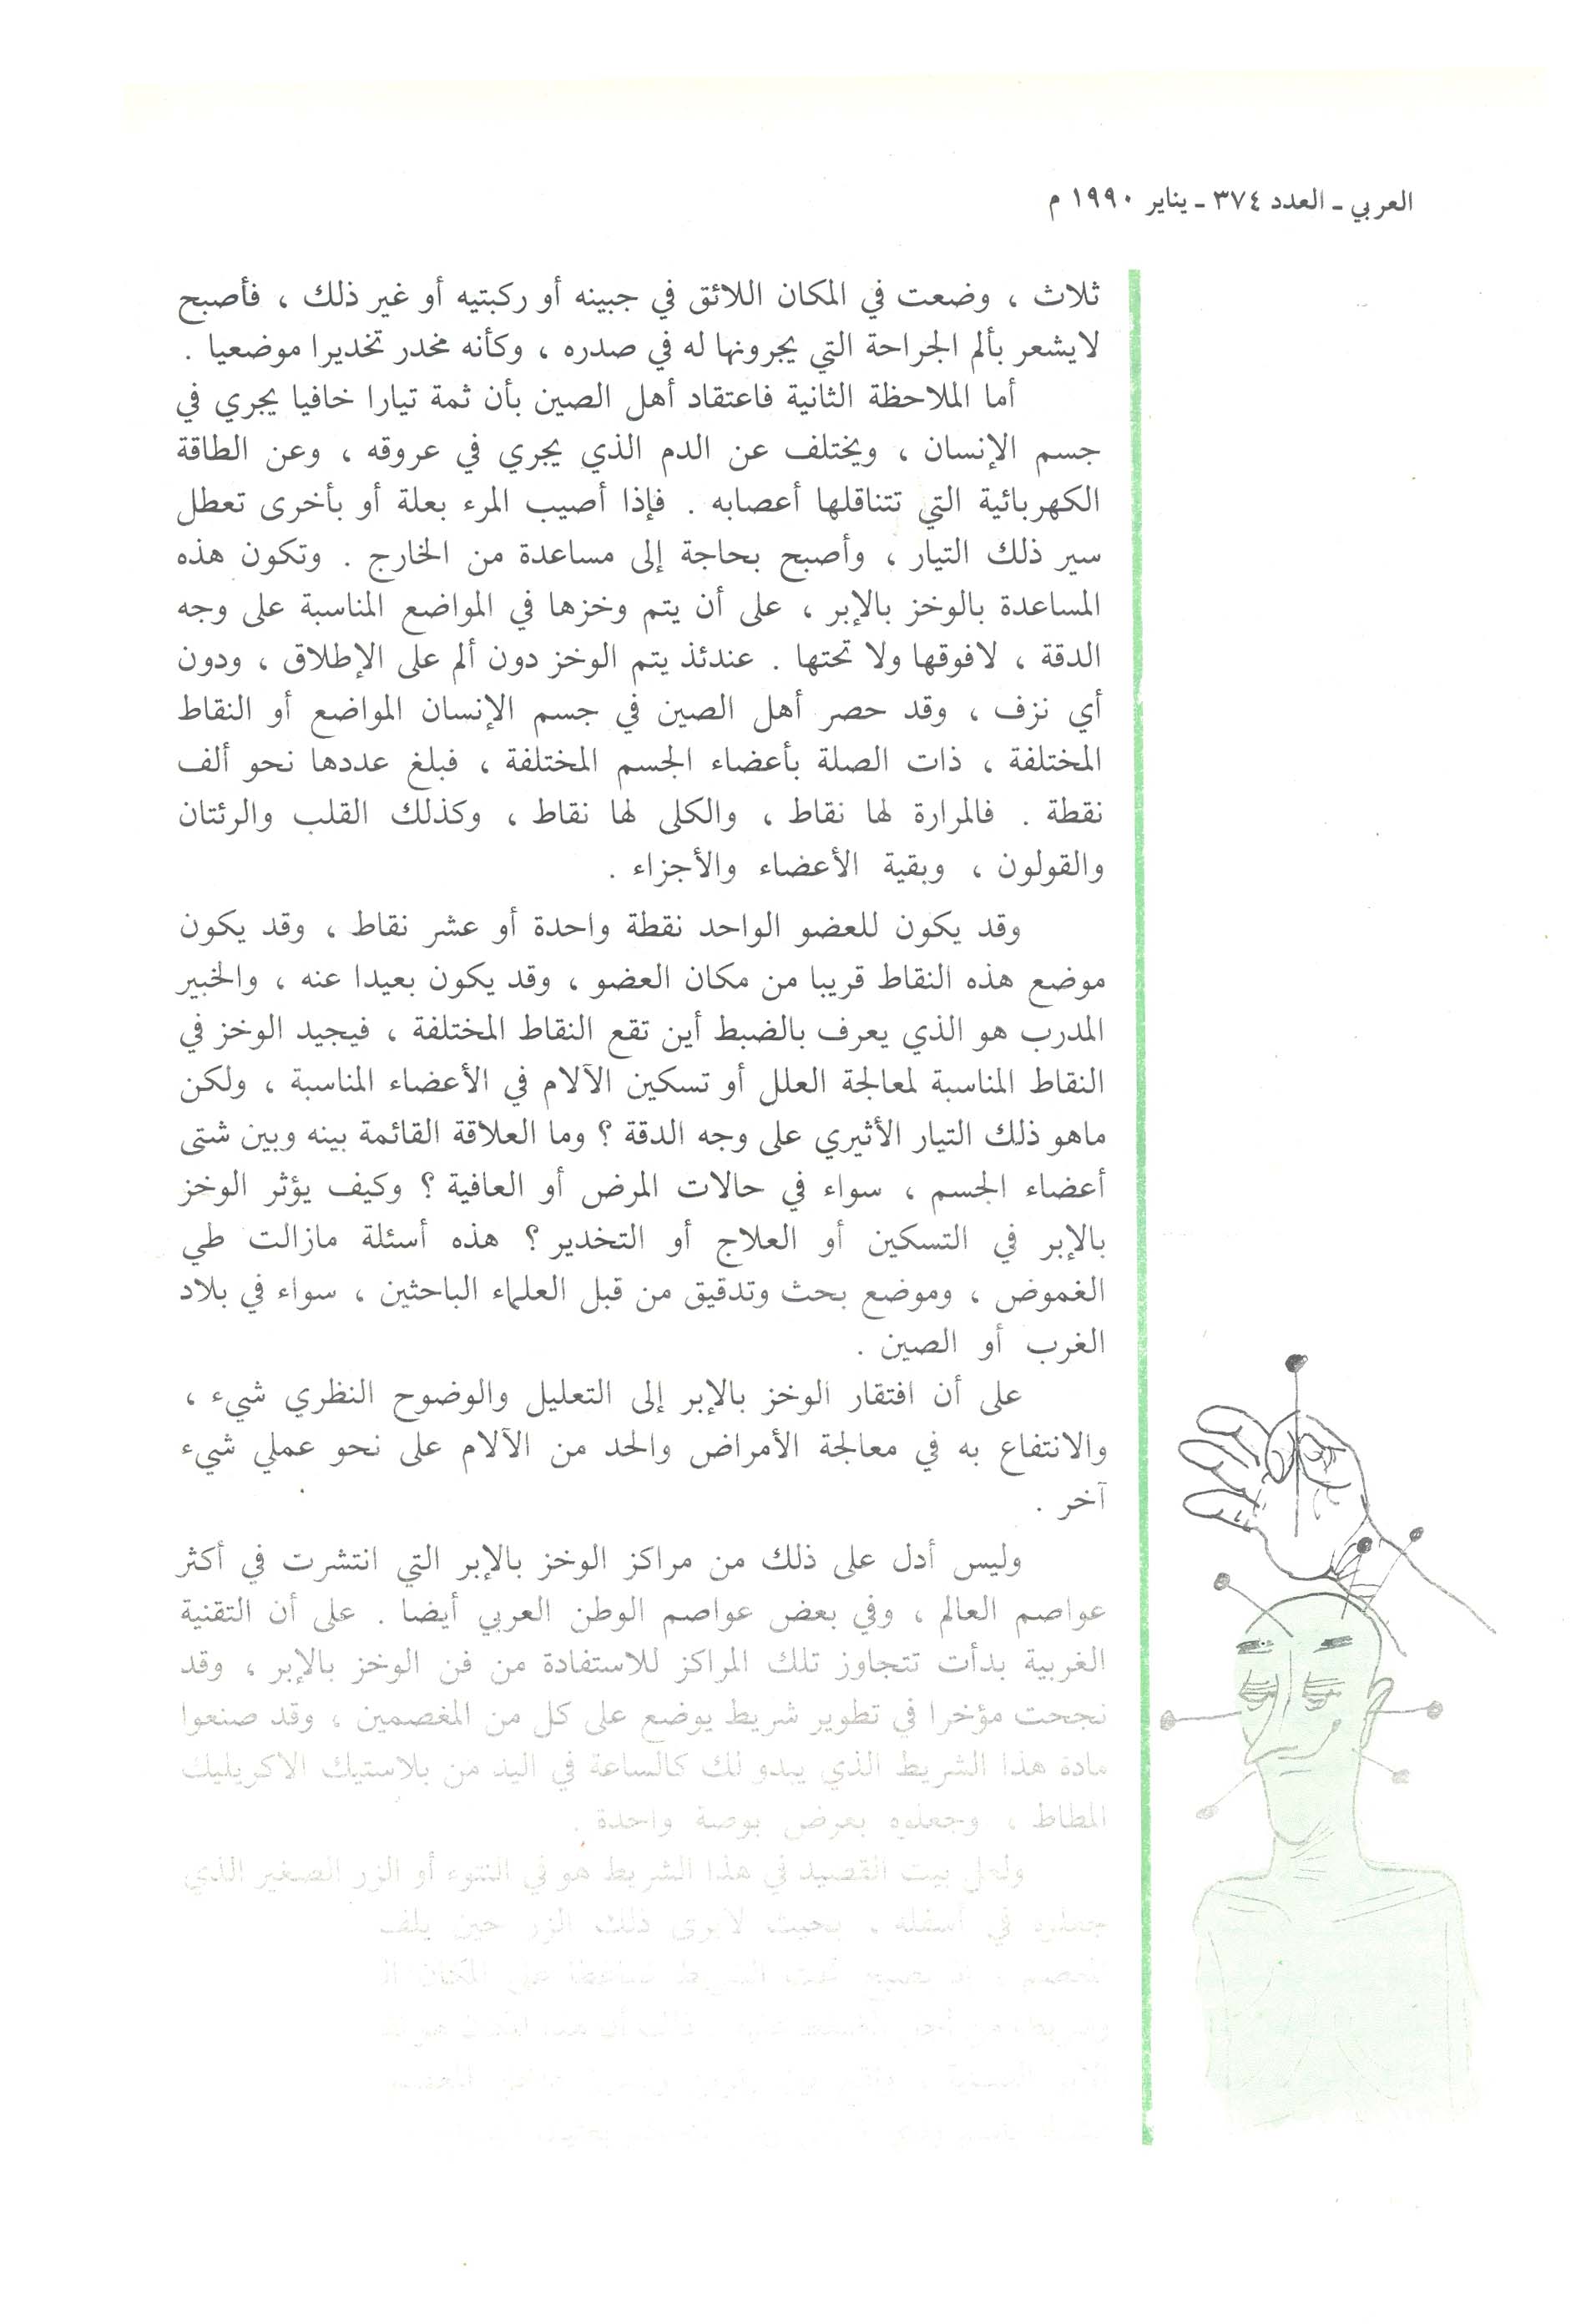 العربي ـ العدد ٣٧٤ ـ يناير ١٩٩٠ م
ثلاث ، وضعت في المكان اللائق في جبينه أو ركبتيه أو غير ذلك ، فأصبح
لايشعر بألم الجراحة التي يجرونها له في صدره ، وكأنه مخدر تخديرا موضعيا .
أما الملاحظة الثانية فاعتقاد أهل الصين بأن ثمة تيارا خافيا يجري في
جسم الإنسان ، ويختلف عن الدم الذي يجري في عروقه ، وعن الطاقة
الكهربائية التي تتناقلها أعصابه . فإذا أصيب المرء بعلة أو بأخرى تعطل
سير ذلك التيار ، وأصبح بحاجة إلى مساعدة من الخارج . وتكون هذه
المساعدة بالوخز بالإبر ، على أن يتم وخزها في المواضع المناسبة على وجه
الدقة ، لافوقها ولا تحتها . عندئذ يتم الوخز دون ألم على الإطلاق ، ودون
أي نزف ، وقد حصر أهل الصين في جسم الإنسان المواضع أو النقاط
المختلفة ، ذات الصلة بأعضاء الجسم المختلفة ، فبلغ عددها نحو ألف
نقطة . فالمرارة لها نقاط ، والكلى لها نقاط ، وكذلك القلب والرئتان
والقولون ، وبقية الأعضاء والأجزاء .
وقد يكون للعضو الواحد نقطة واحدة أو عشر نقاط ، وقد يكون
موضع هذه النقاط قريبا من مكان العضو ، وقد يكون بعيدا عنه ، والخبير
المدرب هو الذي يعرف بالضبط أين تقع النقاط المختلفة ، فيجيد الوخز في
النقاط المناسبة لمعالجة العلل أو تسكين الآلام في الأعضاء المناسبة ، ولكن
ماهو ذلك التيار الأثيري على وجه الدقة ؟ وما العلاقة القائمة بينه وبين شتى
أعضاء الجسم ، سواء في حالات المرض أو العافية ؟ وكيف يؤثر الوخز
بالإبر في التسكين أو العلاج أو التخدير ؟ هذه أسئلة مازالت طي
الغموض ، وموضع بحث وتدقيق من قبل العلماء الباحثين ، سواء في بلاد
الغرب أو الصين .
على أن افتقار الوخز بالإبر إلى التعليل والوضوح النظري شيء ،
والانتفاع به في معالجة الأمراض والحد من الآلام على نحو عملي شيء
آخر .
وليس أدل على ذلك من مراكز الوخز بالإبر التي انتشرت في أكثر
عواصم العالم ، وفي بعض عواصم الوطن العربي أيضا . على أن التقنية
الغربية بدأت تتجاوز تلك المراكز للاستفادة من فن الوخز بالإبر ، وقد
نجحت مؤخرا في تطوير شريط يوضع على كل من المغصمين ، وقد صنعوا
مادة هذا الشريط الذي يبدو لك كالساعة في اليد من بلاستيك الاكريليك
المطاط ، وجعلوه بعرض بوصة واحدة .
ولعل بيت القصيد في هذا الشريط هو في النتوء أو الزر الصغير الذي
جعلوه في أسفله ، بحيث لايرى ذلك الزر حين يلف